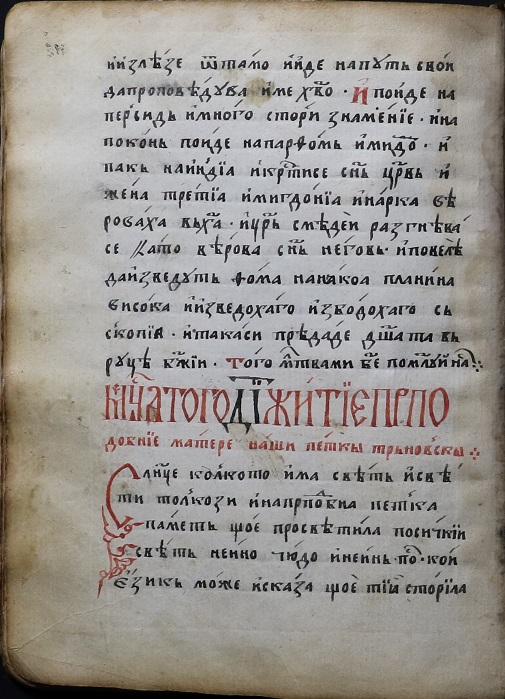 и излѣзе ѿ тамо и иде на путь свои
да проповѣдува име хв҃о · И поиде на
персидь и много стори знаменїе · и на
поконь поиде на парѳомь и мидѡ · и
пакь на индїа и кр҃тисе сн҃ь цр҃вь и
жена третїа и мигдонїа и нарка вѣ
роваха вь ха҃ · и цр҃ь смѣдеи разгнѣва
се като вѣрова сн҃ь неговь · и повелѣ
да изведуть ѳома на накоа планина
висока и изведохаго избодохаго сь
скопїѧ · и такаси прѣдаде дш҃ата вь
руцѣ бж҃їи · Того мл҃твами бж҃е помлуи на
того ДІ҃ ЖИТИЕ ПРПО
добнїе матере наши петкы трьновскы
Слн҃це колкото има свѣть и свѣ
ти толкози и на прпⷣобна петка
паметь що е просвѣтила по сичкїи
свѣть нейно чюдо и нейнь · кои
езикь може исказа що е тїа сторила